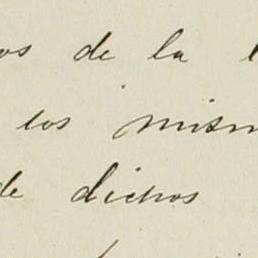 os de la
los mism
de dichos